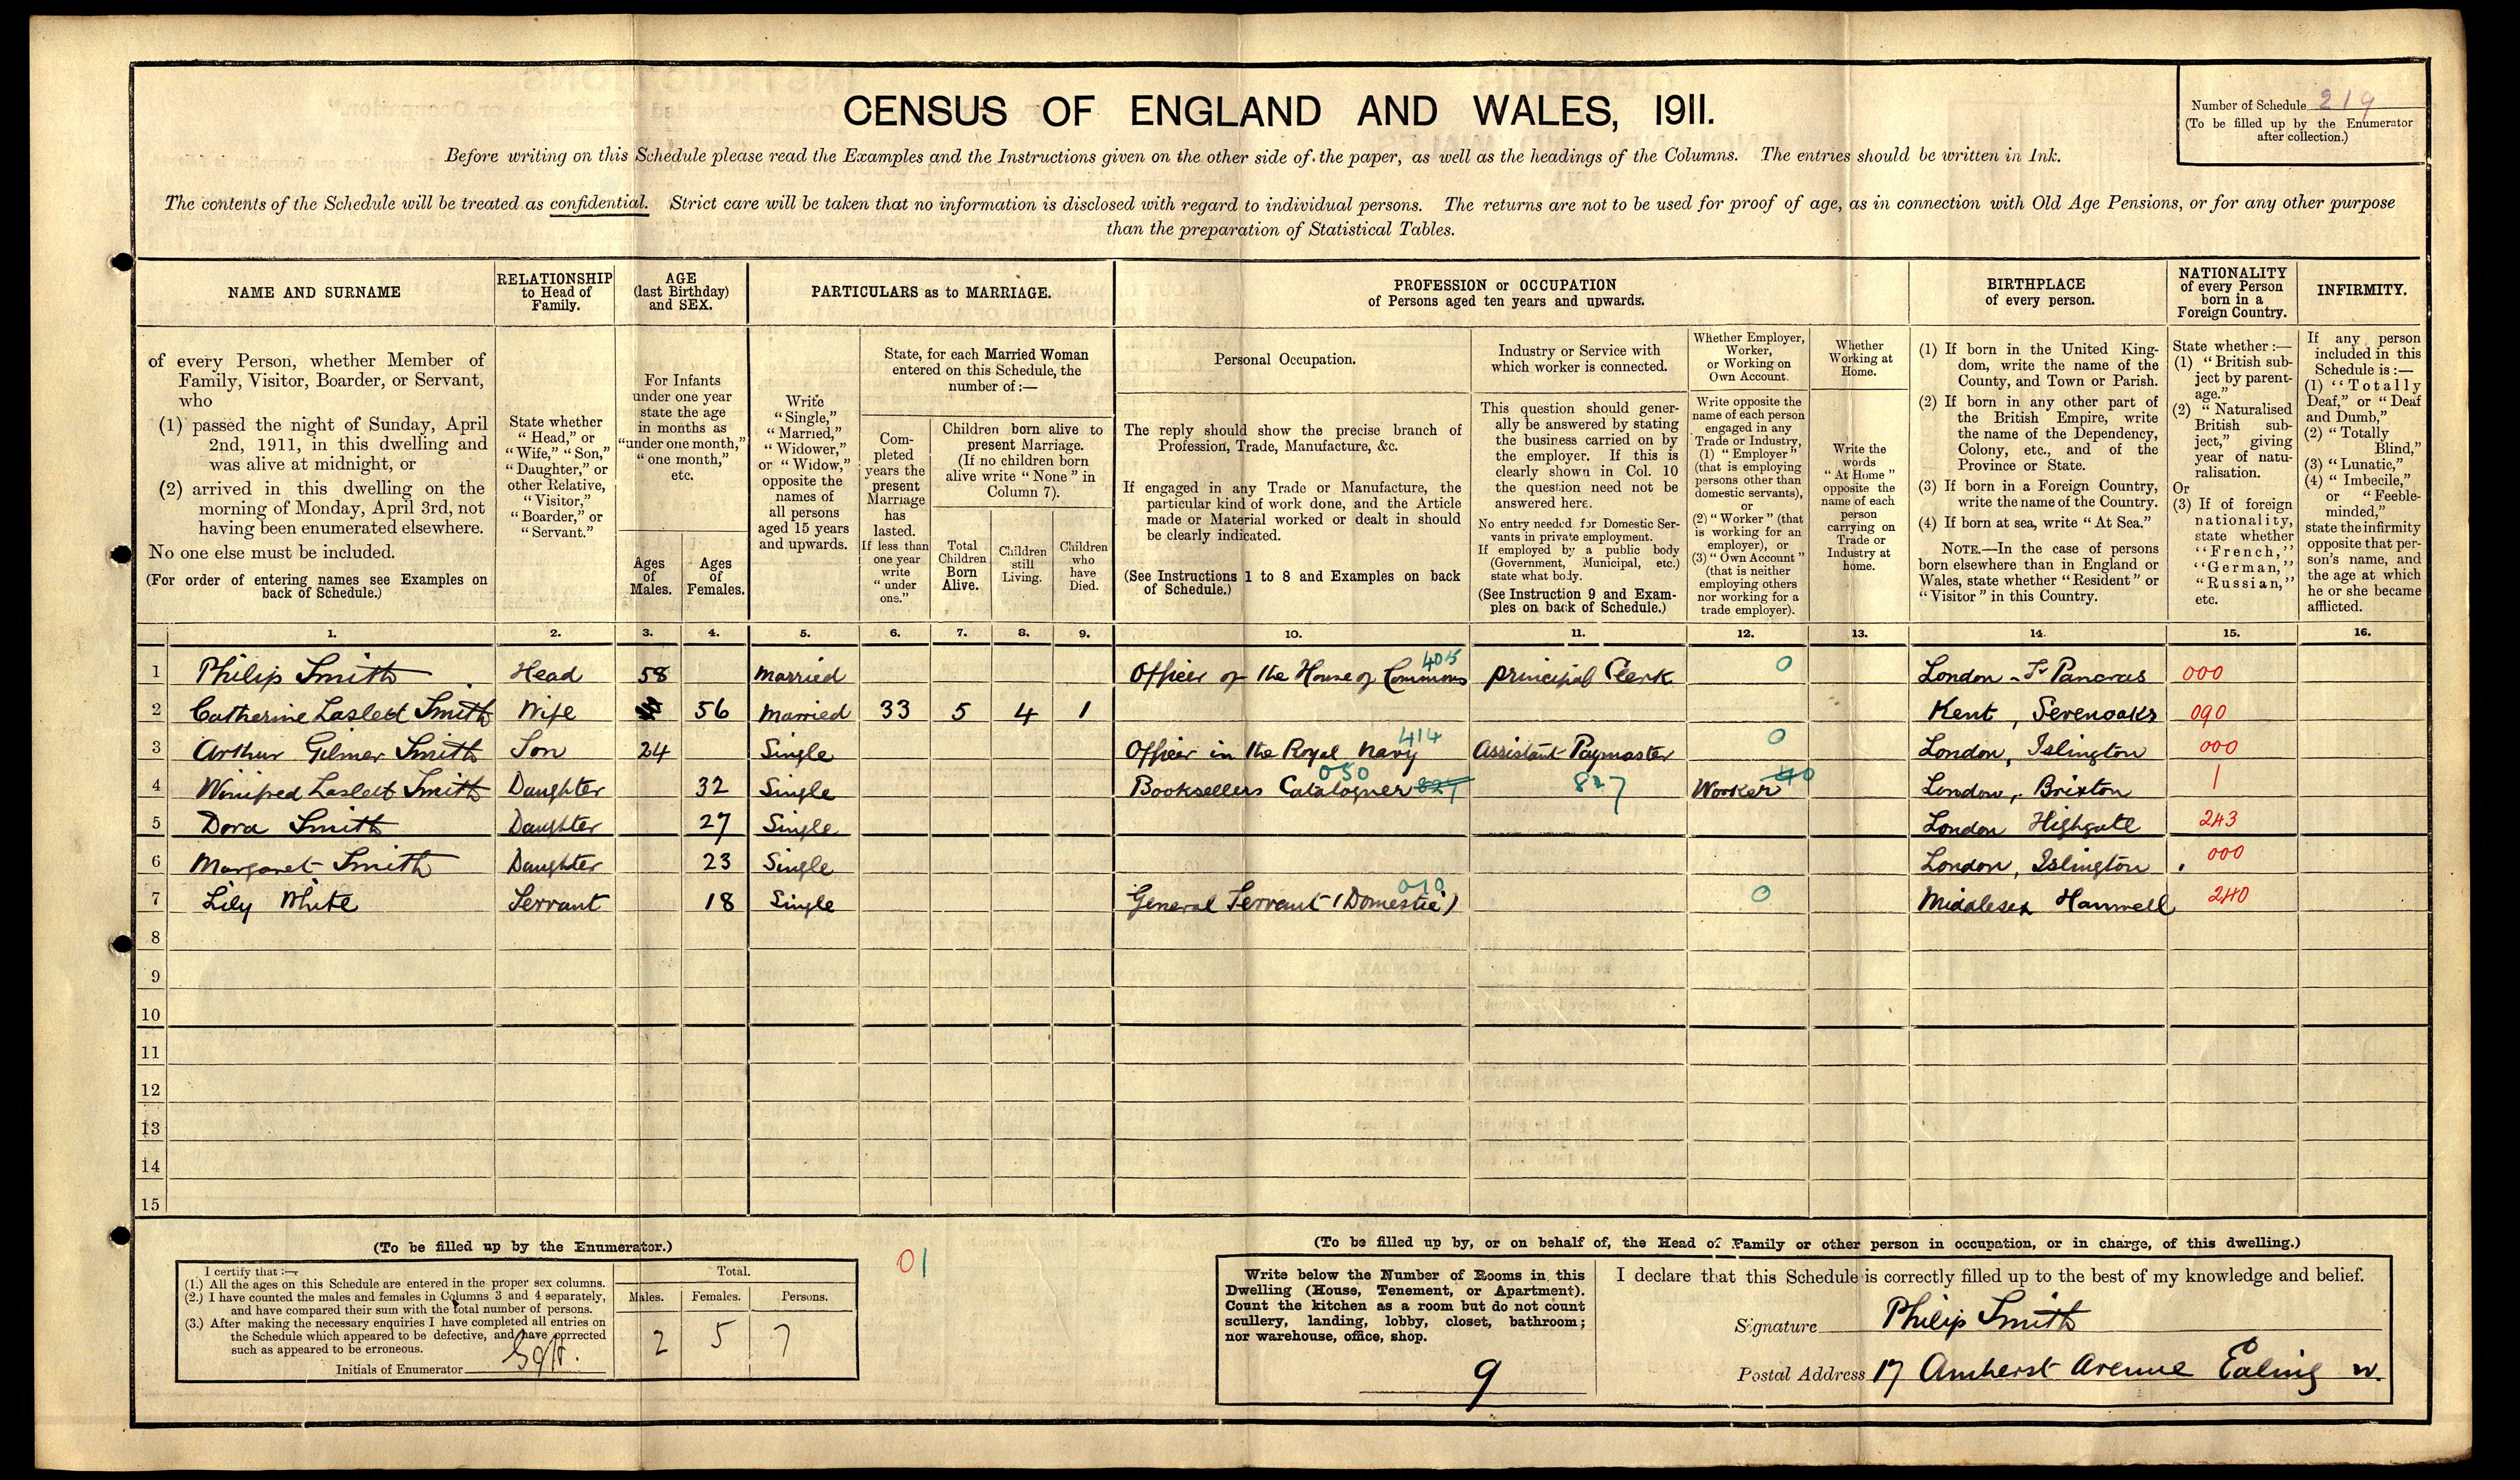 CENSUS OF ENGLAND AND WALES, 1911.
Number of Schedule 219
(To be filled up by the Enumerator
after collection.)
Before writing on this Schedule please read the Examples and the Instructions given on the other side of the paper, as well as the headings of the Columns. The entries should be written in Ink.
The contents of the Schedule will be treated as confidential. Strict care will be taken that no information is disclosed with regard to individual persons. The returns are not to be used for proof of age, as in connection with Old Age Pensions, or for any other purpose
than the preparation of Statistical Tables.
NAME AND SURNAME
of every Person, whether Member of
Family, Visitor, Boarder, or Servant,
who
(1) passed the night of Sunday, April
2nd, 1911, in this dwelling and
was alive at midnight, or
(2) arrived in this dwelling on the
morning of Monday, April 3rd, not
having been enumerated elsewhere.
No one else must be included.
(For order of entering names see Examples on
back of Schedule.)
RELATIONSHIP
to Head of
Family.
State whether
"Head," or
"Wife," "Son,"
"Daughter," or
other Relative,
"Visitor,"
"Boarder," or
"Servant."
AGE
(last Birthday)
and SEX.
For Infants
under one year
state the age
in months as
"under one month,"
"one month,"
etc.
Ages
of
Males.
Ages
of
Females.
PARTICULARS as to MARRIAGE.
Write
"Single,"
"Married,"
"Widower,"
or "Widow,"
opposite the
names of
all persons
aged 15 years
and upwards.
State, for each Married Woman
entered on this Schedule, the
number of:—
Com-
pleted
years the
present
Marriage
has
lasted.
If less than
one year
write
"under
one."
Children born alive to
present Marriage.
(If no children born
alive write "None" in
Column 7).
Total
Children
Born
Alive.
Children
still
Living.
Children
who
have
Died.
PROFESSION or OCCUPATION
of Persons aged ten years and upwards.
Personal Occupation.
The reply should show the precise branch of
Profession, Trade, Manufacture, &c.
If engaged in any Trade or Manufacture, the
particular kind of work done, and the Article
made or Material worked or dealt in should
be clearly indicated.
(See Instructions 1 to 8 and Examples on back
of Schedule.)
Industry or Service with
which worker is connected.
This question should gener-
ally be answered by stating
the business carried on by
the employer. If this is
clearly shown in Col. 10
the question need not be
answered here.
No entry needed for Domestic Ser-
vants in private employment.
If employed by a public body
(Government, Municipal, etc.)
state what body.
(See Instruction 9 and Exam-
ples on back of Schedule.)
Whether Employer,
Worker,
or Working on
Own Account.
Write opposite the
name of each person
engaged in any
Trade or Industry,
(1) "Employer"
(that is employing
persons other than
domestic servants),
or
(2) "Worker" (that
is working for an
employer), or
(3) "Own Account"
(that is neither
employing others
nor working for a
trade employer).
Whether
Working at
Home.
Write the
words
"At Home"
opposite the
name of each
person
carrying on
Trade or
Industry at
home.
BIRTHPLACE
of every person.
(1) If born in the United King-
dom, write the name of the
County, and Town or Parish.
(2) If born in any other part of
the British Empire, write
the name of the Dependency,
Colony, etc., and of the
Province or State.
(3) If born in a Foreign Country,
write the name of the Country.
(4) If born at sea, write "At Sea."
NOTE.—In the case of persons
born elsewhere than in England or
Wales, state whether "Resident" or
"Visitor" in this Country.
NATIONALITY
of every Person
born in a
Foreign Country.
State whether:—
(1) "British sub-
ject by parent-
age."
(2) "Naturalised
British sub-
ject," giving
year of natu-
ralisation.
Or
(3) If of foreign
nationality,
state whether
"French,"
"German,"
"Russian,"
etc.
INFIRMITY.
If any person
included in this
Schedule is:—
(1) "Totally
Deaf," or "Deaf
and Dumb,"
(2) "Totally
Blind,"
(3) "Lunatic,"
(4) "Imbecile,"
or "Feeble-
minded,"
state the infirmity
opposite that per-
son's name, and
the age at which
he or she became
afflicted.
1. 2. 3. 4. 5. 6. 7. 8. 9. 10. 11. 12. 13. 14. 15. 16.
1 Philip Smith Head 58 Married Officer of the House of Commons 405 principal Clerk 0 London - St Pancras 000
2 Catherine Laslett Smith Wife 56 Married 33 5 4 1 Kent, Sevenoaks 090
3 Arthur Gilmer Smith Son 24 Single Officer in the Royal Navy 414 Assistant Paymaster 0 London, Islington 000
4 Winifred Laslett Smith Daughter 32 Single Booksellers Cataloguer 050 827 827 Worker 40 London, Brixton 1
5 Dora Smith Daughter 27 Single London Highgate 243
6 Margaret Smith Daughter 23 Single London, Islington 000
7 Lily White Servant 18 Single General Servant (Domestic) 010 0 Middlesex Hanwell 240
8
9
10
11
12
13
14
15
(To be filled up by the Enumerator.)
I certify that:—
(1.) All the ages on this Schedule are entered in the proper sex columns.
(2.) I have counted the males and females in Columns 3 and 4 separately,
and have compared their sum with the total number of persons.
(3.) After making the necessary enquiries I have completed all entries on
the Schedule which appeared to be defective, and have corrected
such as appeared to be erroneous.
Initials of Enumerator
Total.
Males. Females. Persons.
2 5 7
01
(To be filled up by, or on behalf of, the Head of Family or other person in occupation, or in charge, of this dwelling.)
Write below the Number of Rooms in this
Dwelling (House, Tenement, or Apartment).
Count the kitchen as a room but do not count
scullery, landing, lobby, closet, bathroom;
nor warehouse, office, shop.
9
I declare that this Schedule is correctly filled up to the best of my knowledge and belief.
Signature Philip Smith
Postal Address 17 Amherst Avenue Ealing W.